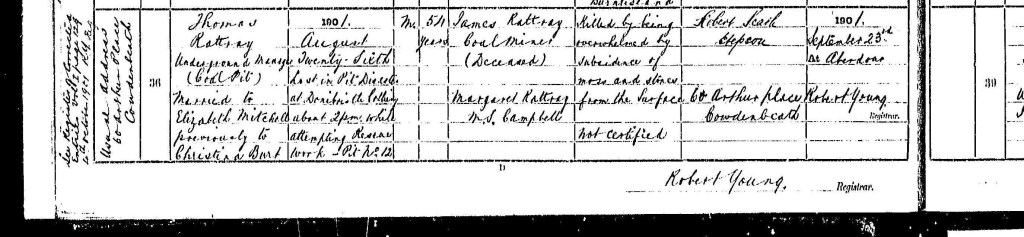 Burntisland
See Register of Corrected
Entries Vol 2 page 129
Usual address
60 Arthur Place
Cowdenbeath
36
Thomas
Rattray
Underground Manager
(Coal Pit)
Married to
Elizabeth Mitchell
previously to
Christina Burt
1901.
August
Twenty-Sixth
Lost in Pit Disaster
at Donibristle Colliery
about 2 p.m. while
attempting Rescue
work - Pit No 12
M. 54
years
James Rattray
Coal Miner
(Deceased)
Margaret Rattray
M.S. Campbell
Killed by being
overwhelmed by
Subsidence of
moss and stones
from the Surface
Not certified
Robert
Stepson
60 Arthur place
Cowdenbeath
1901.
September 23rd
At Aberdour
Robert Young
Registrar.
39
D
Robert Young. Registrar.